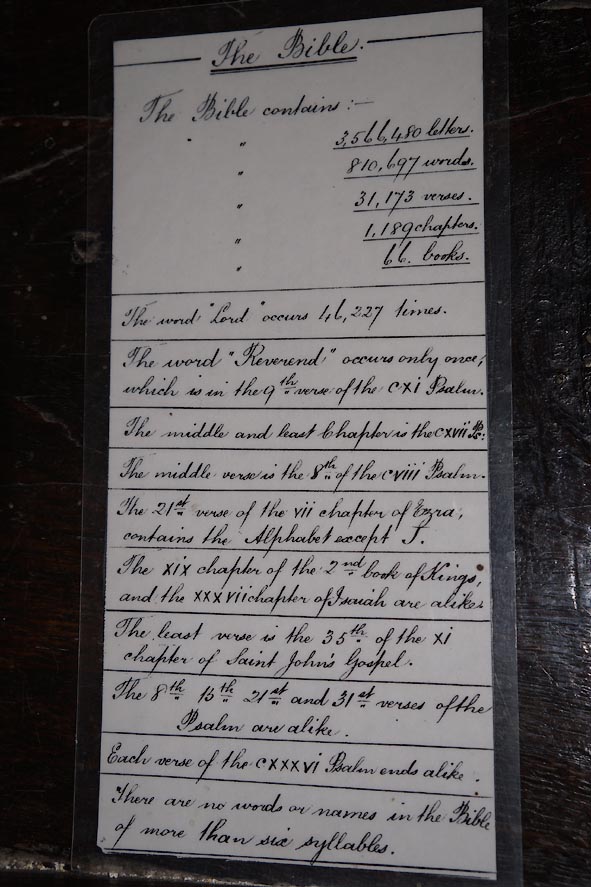 The Bible.
The Bible contains :—
" 3,566,480 letters.
" 810,697 words.
" 31,173 verses.
" 1,189 chapters.
" 66. books.
The word "Lord" occurs 46,227 times.
The word "Reverend" occurs only once,
which is in the 9th verse of the CXI Psalm.
The middle and least Chapter is the CXVII Ps:
The middle verse is the 8th of the CVIII Psalm.
The 21st verse of the VII chapter of Ezra,
contains the Alphabet except J.
The XIX chapter of the 2nd book of Kings,
and the XXXVII chapter of Isaiah are alike.
The least verse is the 35th of the XI
chapter of Saint John's Gospel.
The 8th 15th 21st and 31st verses of the
Psalm are alike.
Each verse of the CXXXVI Psalm ends alike.
There are no words or names in the Bible
of more than six syllables.